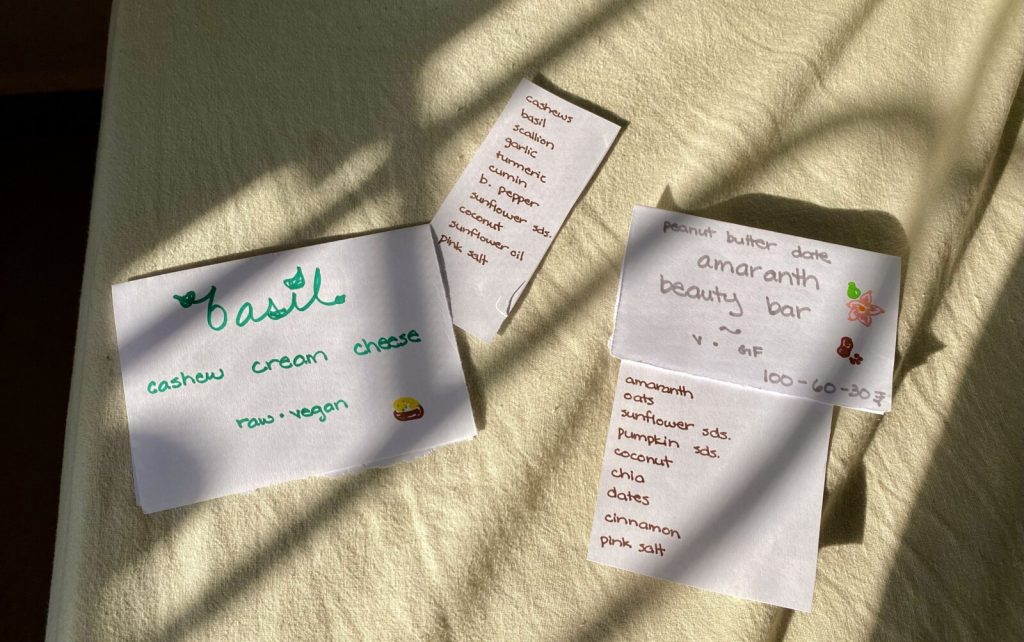 basil
cashew cream cheese
raw • vegan
cashews
basil
scallion
garlic
turmeric
cumin
b. pepper
sunflower sds.
coconut
sunflower oil
pink salt
peanut butter date
amaranth
beauty bar
~
v • GF
100-60-30 ₹
amaranth
oats
sunflower sds.
pumpkin sds.
coconut
chia
dates
cinnamon
pink salt